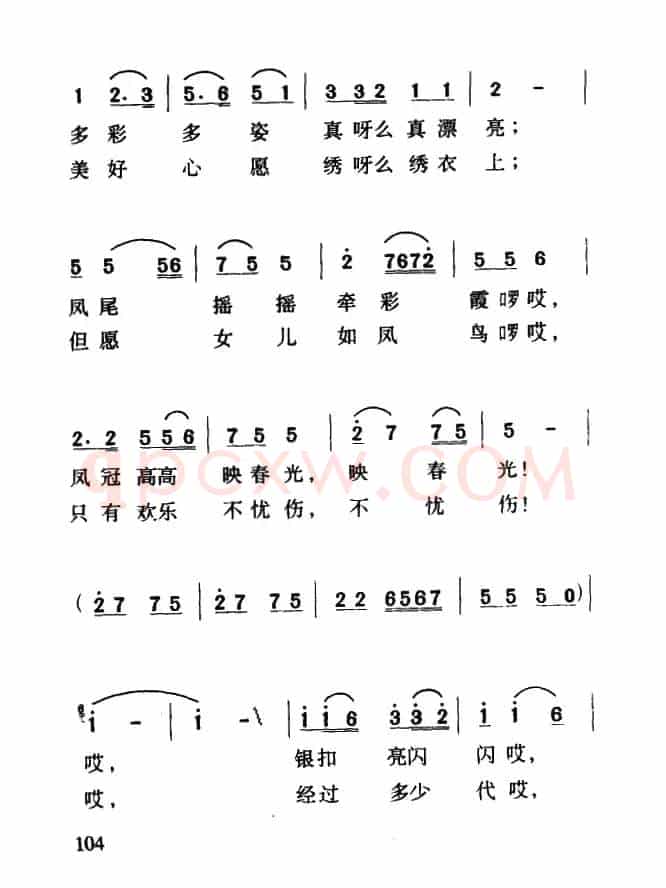 1 2·3 | 5·6 5 1 | 3 3 2 1 1 | 2 - |
多彩 多姿 真呀么真漂亮；
美好 心愿 绣呀么绣衣上；
5 5 56 | 7 5 5 | 2 7672 | 5 5 6
凤尾 摇摇牵彩 霞啰哎，
但愿 女儿如凤 鸟啰哎，
2·2 5 5 6 | 7 5 5 | 2 7 7 5 | 5 - |
凤冠高高 映春光，映 春 光！
只有欢乐 不忧伤，不 忧 伤！
qpcxw.com
(27 75 | 27 75 | 22 6567 | 55 50) |
i - | i - \ | i i 6 3 3 2 | i i 6
哎， 银扣 亮闪 闪哎，
哎， 经过 多少 代哎，
104